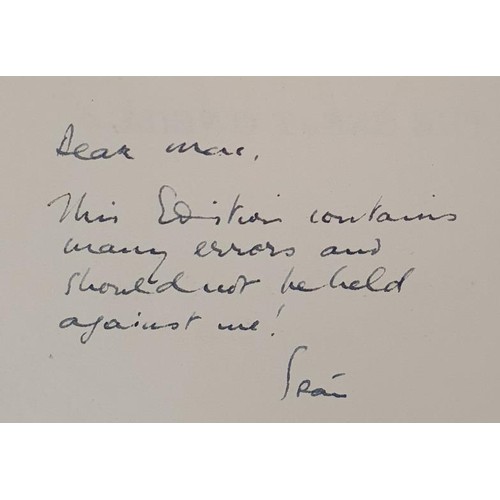 Dear Mac,
This Edition contains
many errors and
should not be held
against me!
Seán